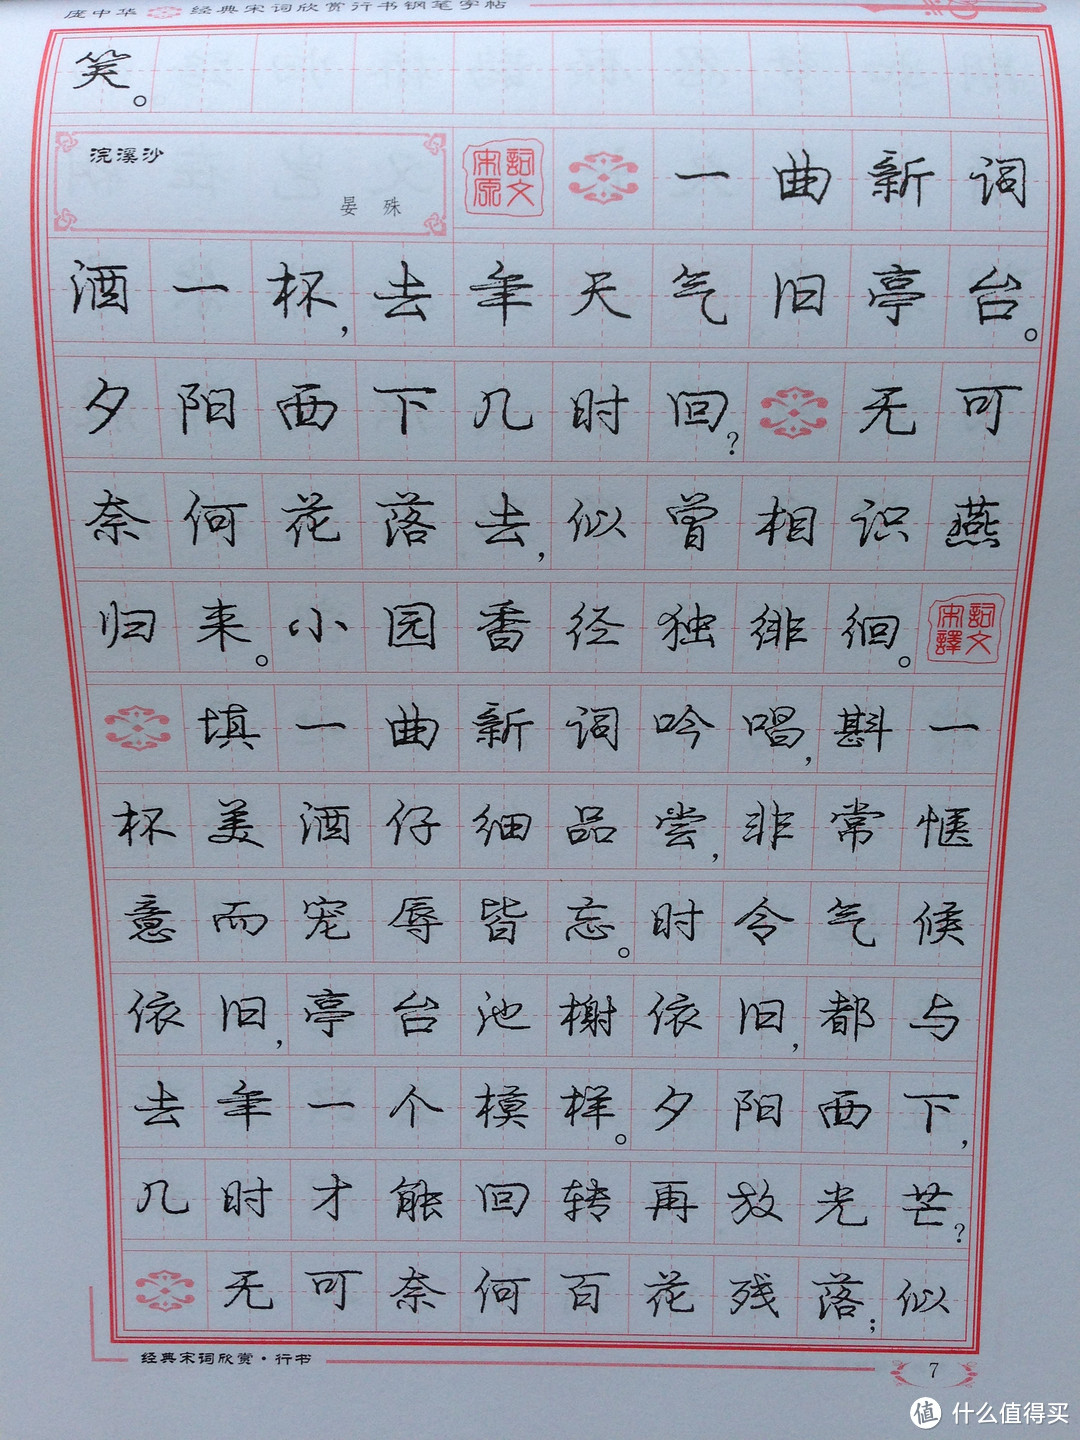 庞中华 经典宋词欣赏行书钢笔字帖
笑。
浣溪沙
晏 殊
宋词原文
一曲新词
酒一杯,去年天气旧亭台。
夕阳西下几时回? 无可
奈何花落去,似曾相识燕
归来。小园香径独徘徊。
宋詞譯文
填一曲新词吟唱,斟一
杯美酒仔细品尝,非常惬
意而宠辱皆忘。时令气候
依旧,亭台池榭依旧,都与
去年一个模样。夕阳西下,
几时才能回转再放光芒?
无可奈何百花残落;似
经典宋词欣赏·行书
7
值 什么值得买